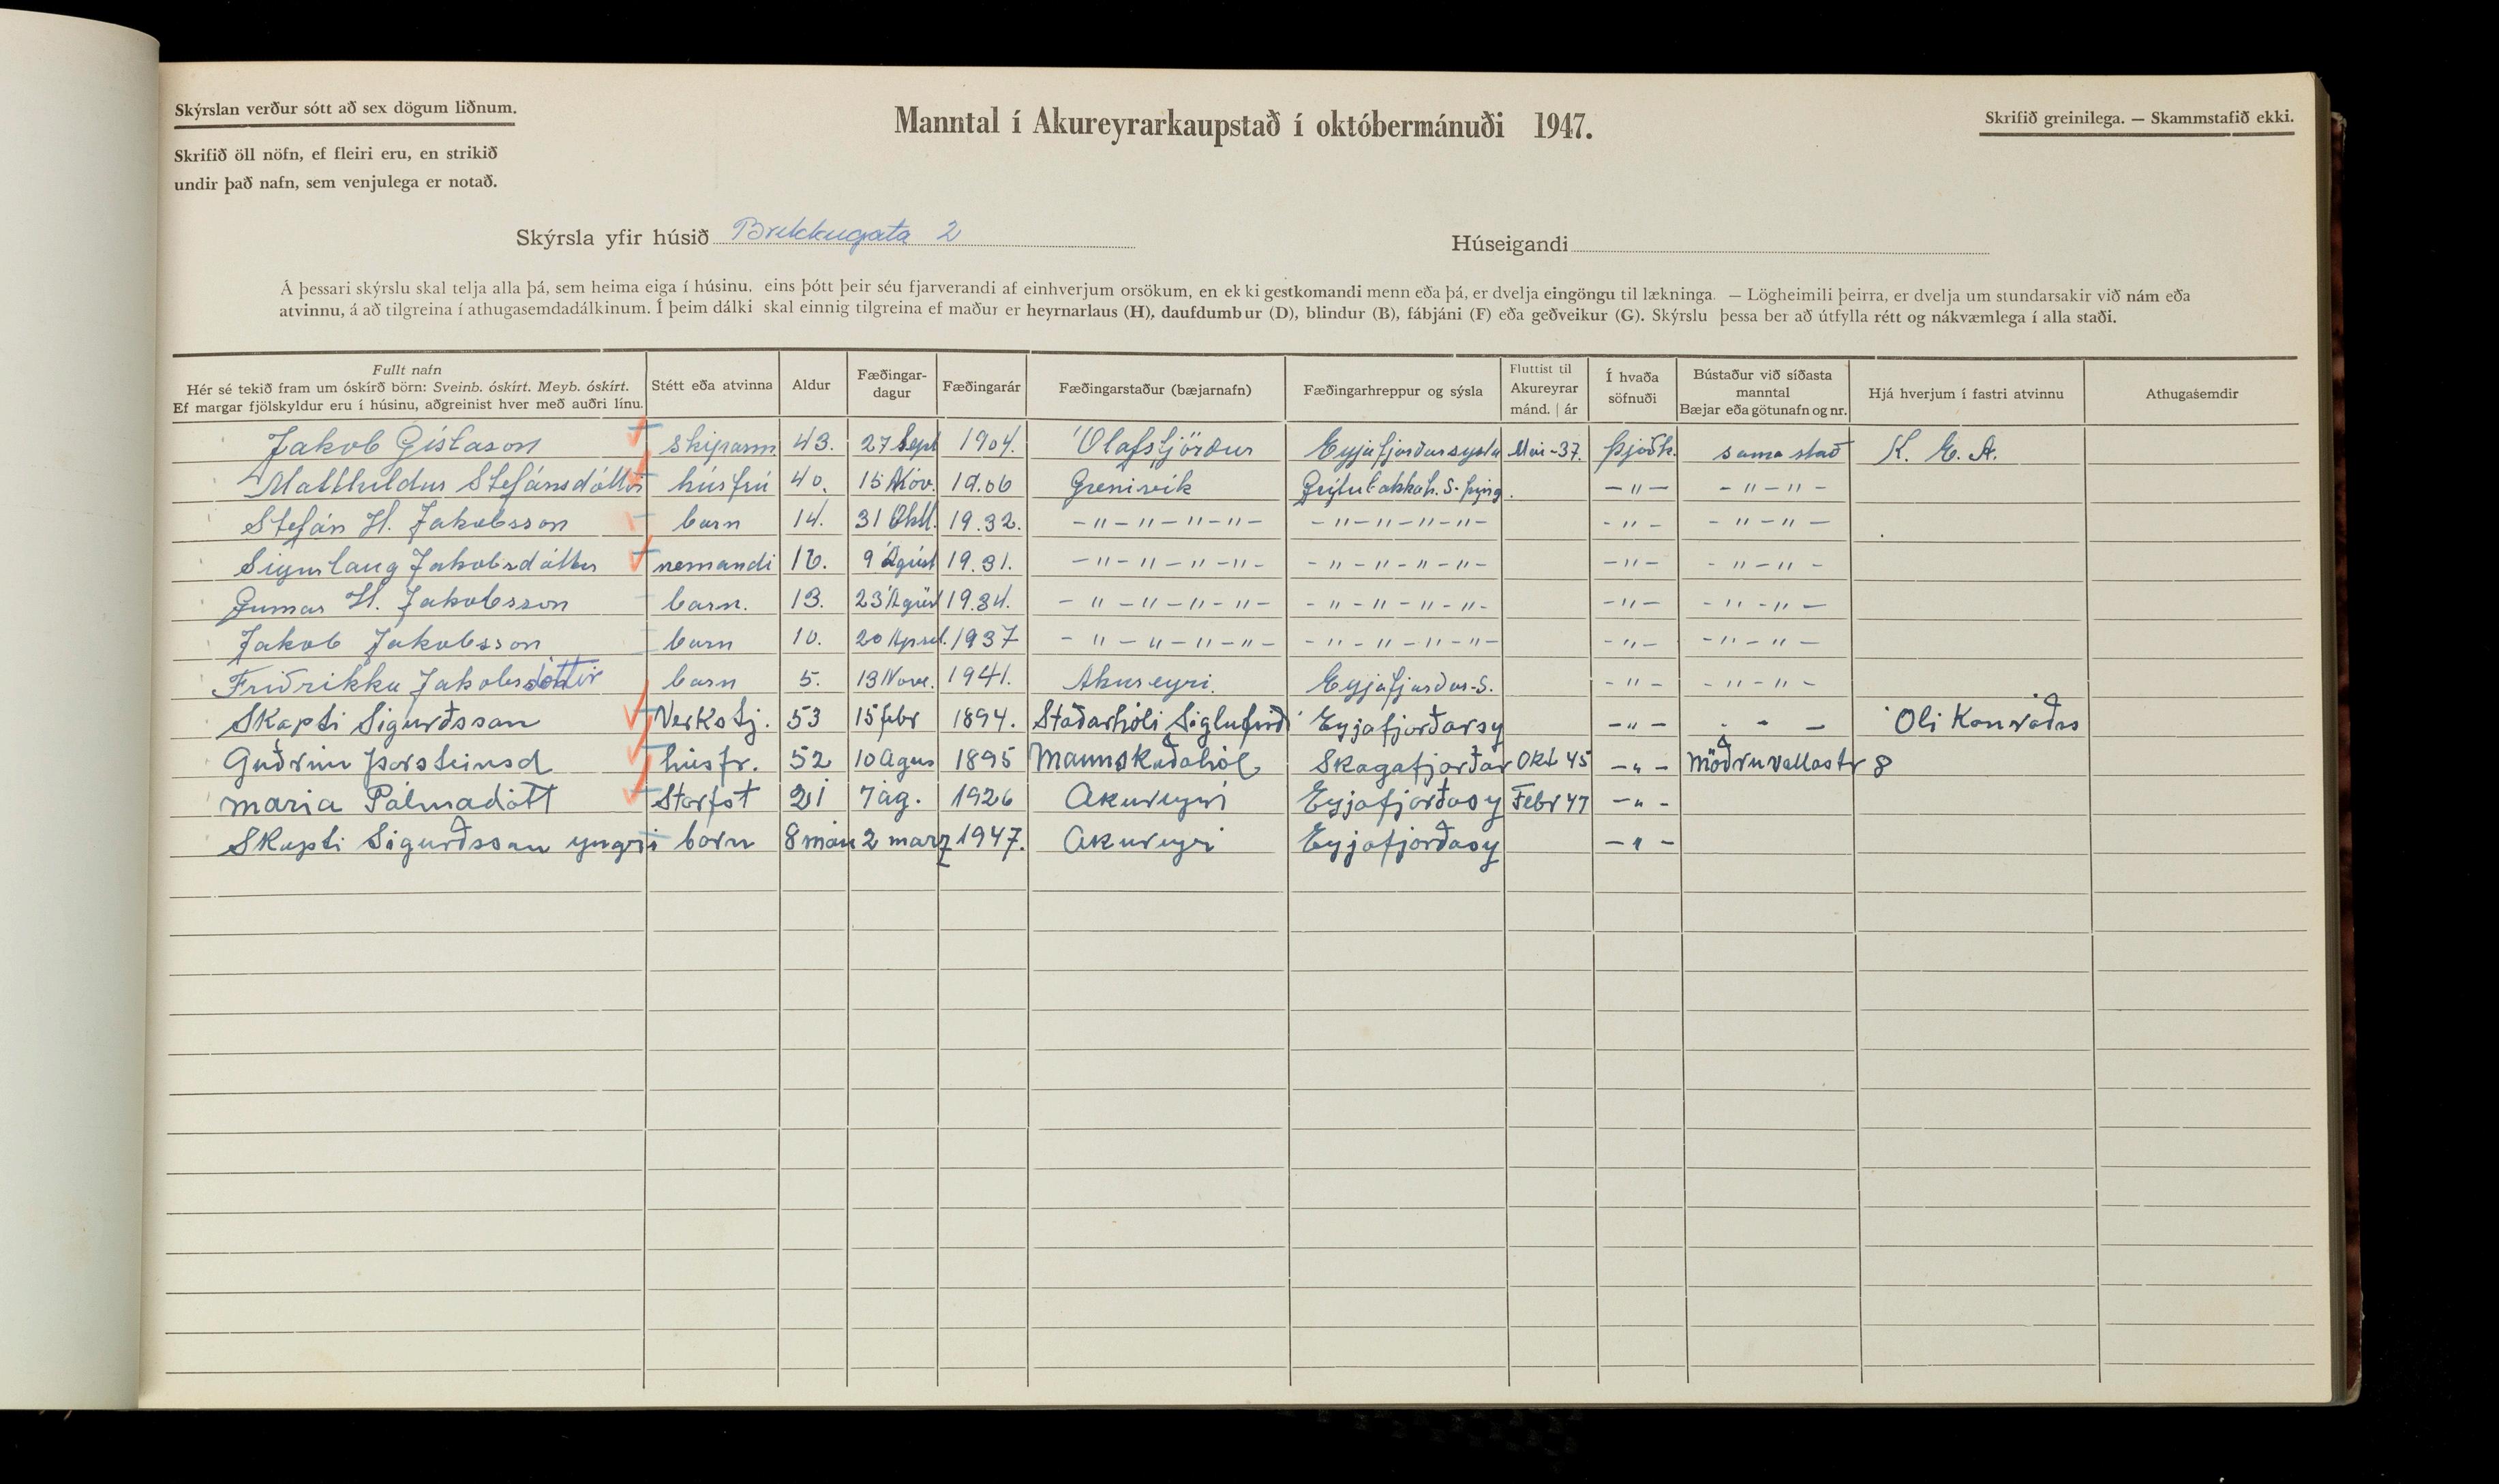 Skýrslan verður sótt að sex dögum liðnum.
Manntal í Akureyrarkaupstað í októbermánuði 1947.
Skrifið greinilega. — Skammstafið ekki.
Skrifið öll nöfn, ef fleiri eru, en strikið
undir það nafn, sem venjulega er notað.
Skýrsla yfir húsið Brekkugata 2 Húseigandi
Á þessari skýrslu skal telja alla þá, sem heima eiga í húsinu, eins þótt þeir séu fjarverandi af einhverjum orsökum, en ekki gestkomandi menn eða þá, er dvelja eingöngu til lækninga. — Lögheimili þeirra, er dvelja um stundarsakir við nám eða
atvinnu, á að tilgreina í athugasemdadálkinum. Í þeim dálki skal einnig tilgreina ef maður er heyrnarlaus (H), daufdumbur (D), blindur (B), fábjáni (F) eða geðveikur (G). Skýrslu þessa ber að útfylla rétt og nákvæmlega í alla staði.
Fullt nafn
Hér sé tekið fram um óskírð börn: Sveinb. óskírt. Meyb. óskírt.
Ef margar fjölskyldur eru í húsinu, aðgreinist hver með auðri línu.
Stétt eða atvinna
Aldur
Fæðingar-
dagur
Fæðingarár
Fæðingarstaður (bæjarnafn)
Fæðingarhreppur og sýsla
Fluttist til
Akureyrar
mánd. | ár
Í hvaða
söfnuði
Bústaður við síðasta
manntal
Bæjar eða götunafn og nr.
Hjá hverjum í fastri atvinnu
Athugasemdir
Jakob Gíslason skipasm. 43. 27 Sept 1904. Ólafsfjörður Eyjafjarðarsysla Mai-37. Þjóðk. sama stað K. E. A.
Matthildur Stefánsdóttir húsfrú 40. 15 Nóv. 19.06 Grenivík Grýtubakkah. S. Þing. — " — - " — " —
Stefán H. Jakobsson barn 14. 31 Okt. 19.32. — " — " — " — " — — " — " — " — " — - " — - " — " —
Sigurlaug Jakobsdóttir nemandi 16. 9 Ágúst 19.31. — " — " — " — " — - " — " — " — " — — " — - " — " —
Gunnar H. Jakobsson barn. 13. 23 Ágúst 19.34. — " — " — " — " — - " — " — " — " — — " — - " — " —
Jakob Jakobsson barn 10. 20 Apríl. 1937 — " — " — " — " — - " — " — " — " — - " — - " — " —
Friðrikka Jakobsdóttir barn 5. 13 Nove. 1941. Akureyri. Eyjafjarðar-S. - " — - " — " —
Skapti Sigurðsson Verkstj. 53 15 febr 1894. Staðarhóli Siglufirði Eyjafjorðarsy — " — - - — Oli Konraðss
Guðrún Þorsteinsd húsfr. 52 10 agus 1895 Mannskaðahól Skagafjorðar Okt 45 — " — Möðruvallastr 8
Maria Pálmadótt Starfst 21 7 ág. 1926 Akureyri Eyjafjorðasy Febr 47 — " —
Skapti Sigurðsson yngri barn 8 mán 2 marz 1947. Akureyri Eyjafjorðasy — " —